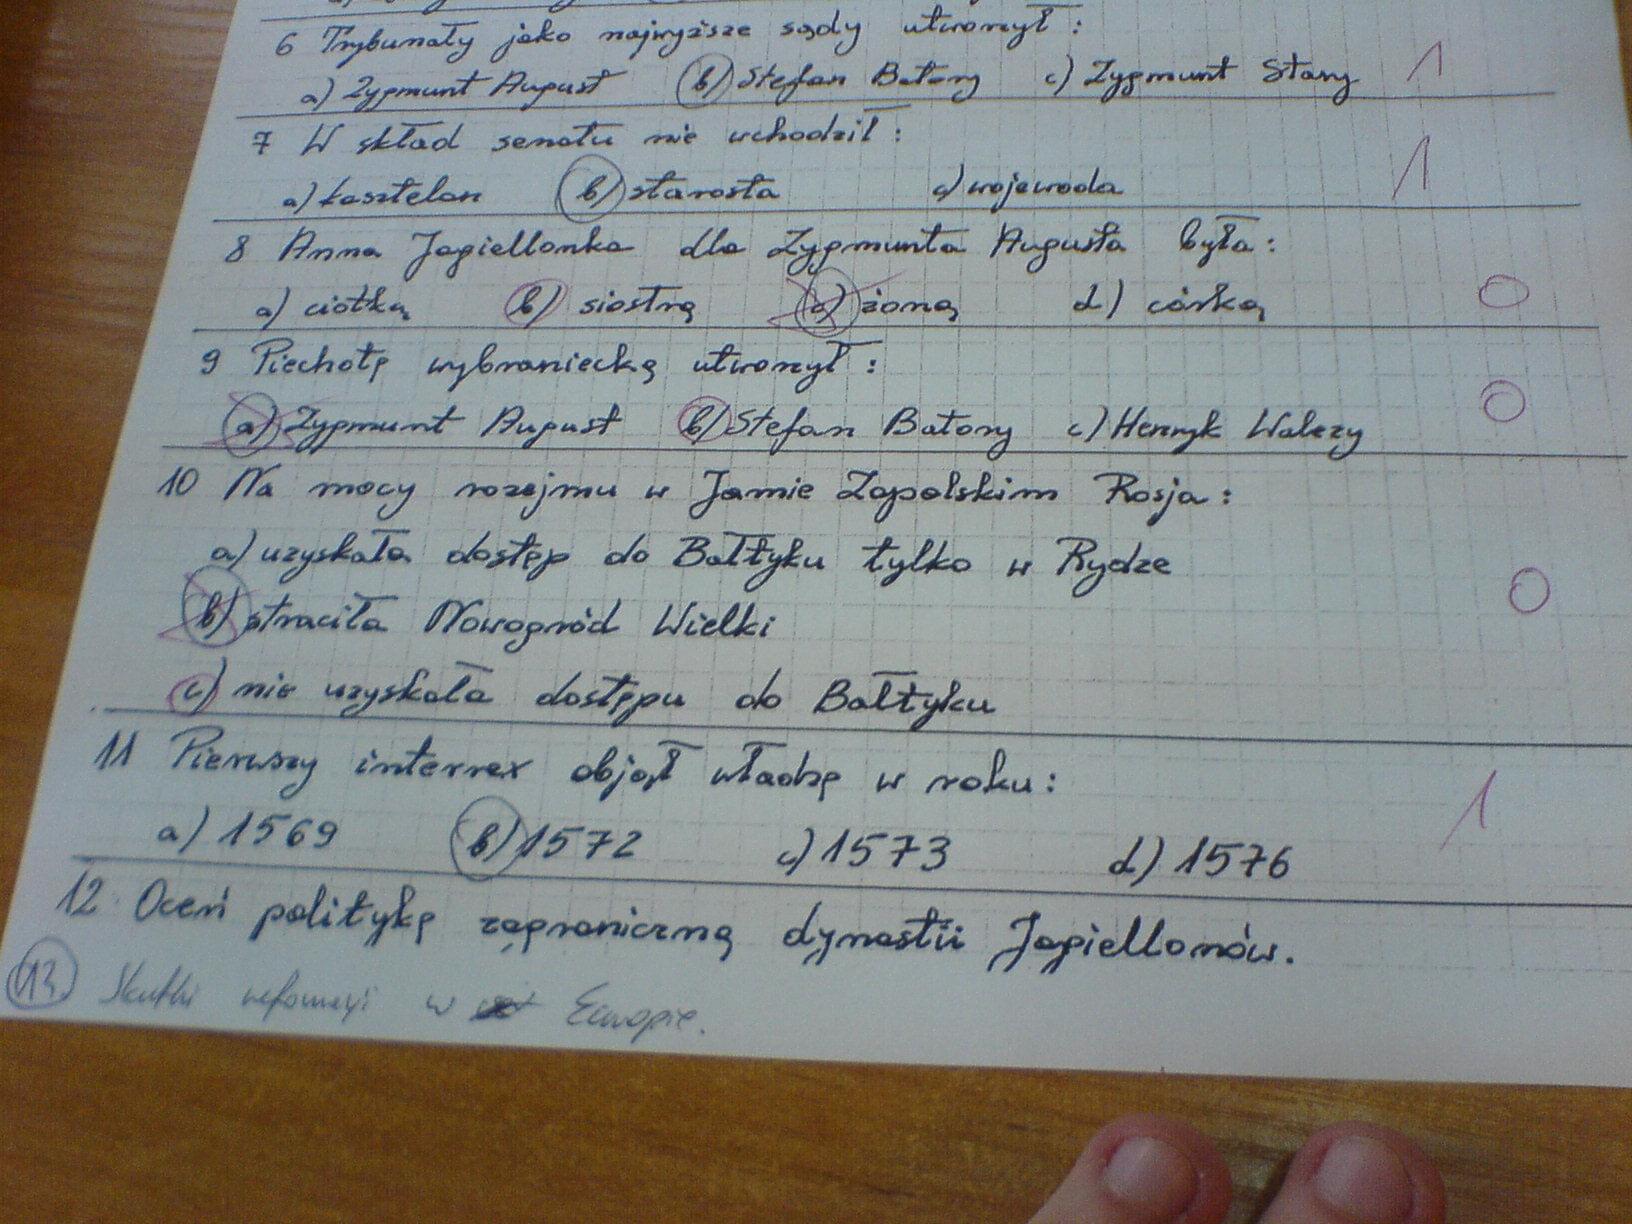 6 Trybunały jako najwyższe sądy utworzył:
a) Zygmunt August b) Stefan Batory c) Zygmunt Stary 1
7 W skład senatu nie wchodził:
a) kasztelan b) starosta c) wojewoda 1
8 Anna Jagiellonka dla Zygmunta Augusta była:
a) ciotką b) siostrą c) żoną d) córką 0
9 Piechotę wybraniecką utworzył:
a) Zygmunt August b) Stefan Batory c) Henryk Walezy 0
10 Na mocy rozejmu w Jamie Zapolskim Rosja:
a) uzyskała dostęp do Bałtyku tylko w Rydze
b) straciła Nowogród Wielki 0
c) nie uzyskała dostępu do Bałtyku
11 Pierwszy interrex objął władzę w roku:
a) 1569 b) 1572 c) 1573 d) 1576 1
12 Oceń politykę zagraniczną dynastii Jagiellonów.
13. Skutki reformacji w Europie.